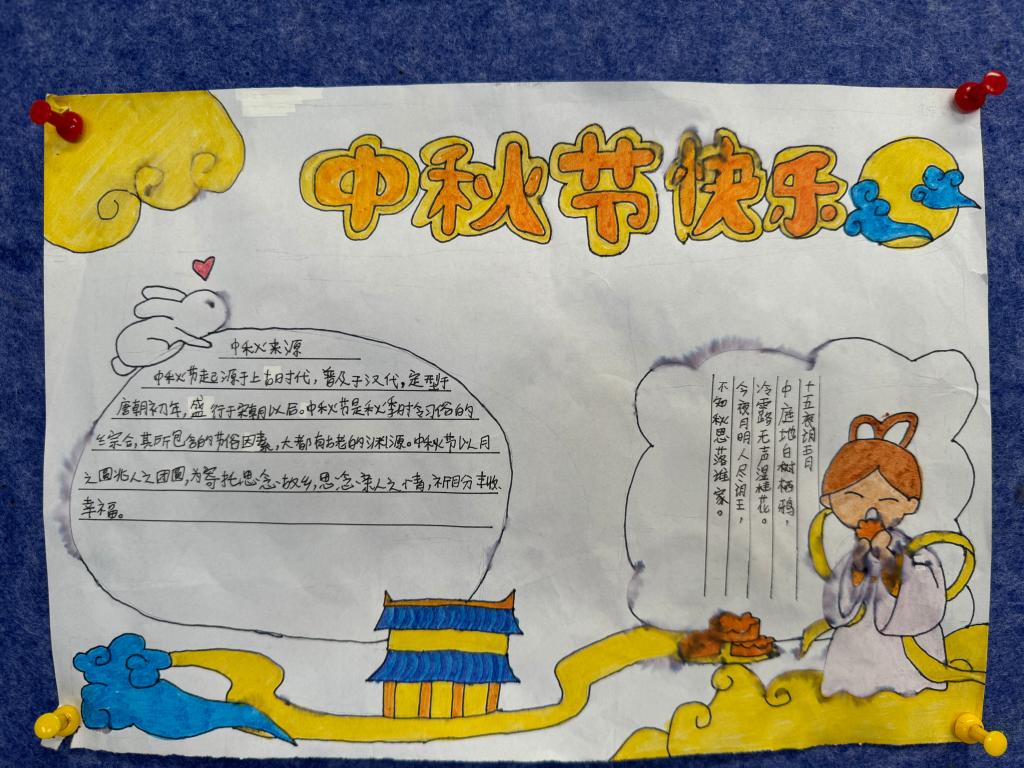 中秋节快乐
中秋来源
中秋节起源于上古时代，普及于汉代，定型于
唐朝初年，盛行于宋朝以后。中秋节是秋季时令习俗的
综合，其所包含的节俗因素，大都有古老的渊源。中秋节以月
之圆兆人之团圆，为寄托思念故乡，思念亲人之情，祈盼丰收
幸福。
十五夜望月
中庭地白树栖鸦，
冷露无声湿桂花。
今夜月明人尽望，
不知秋思落谁家。